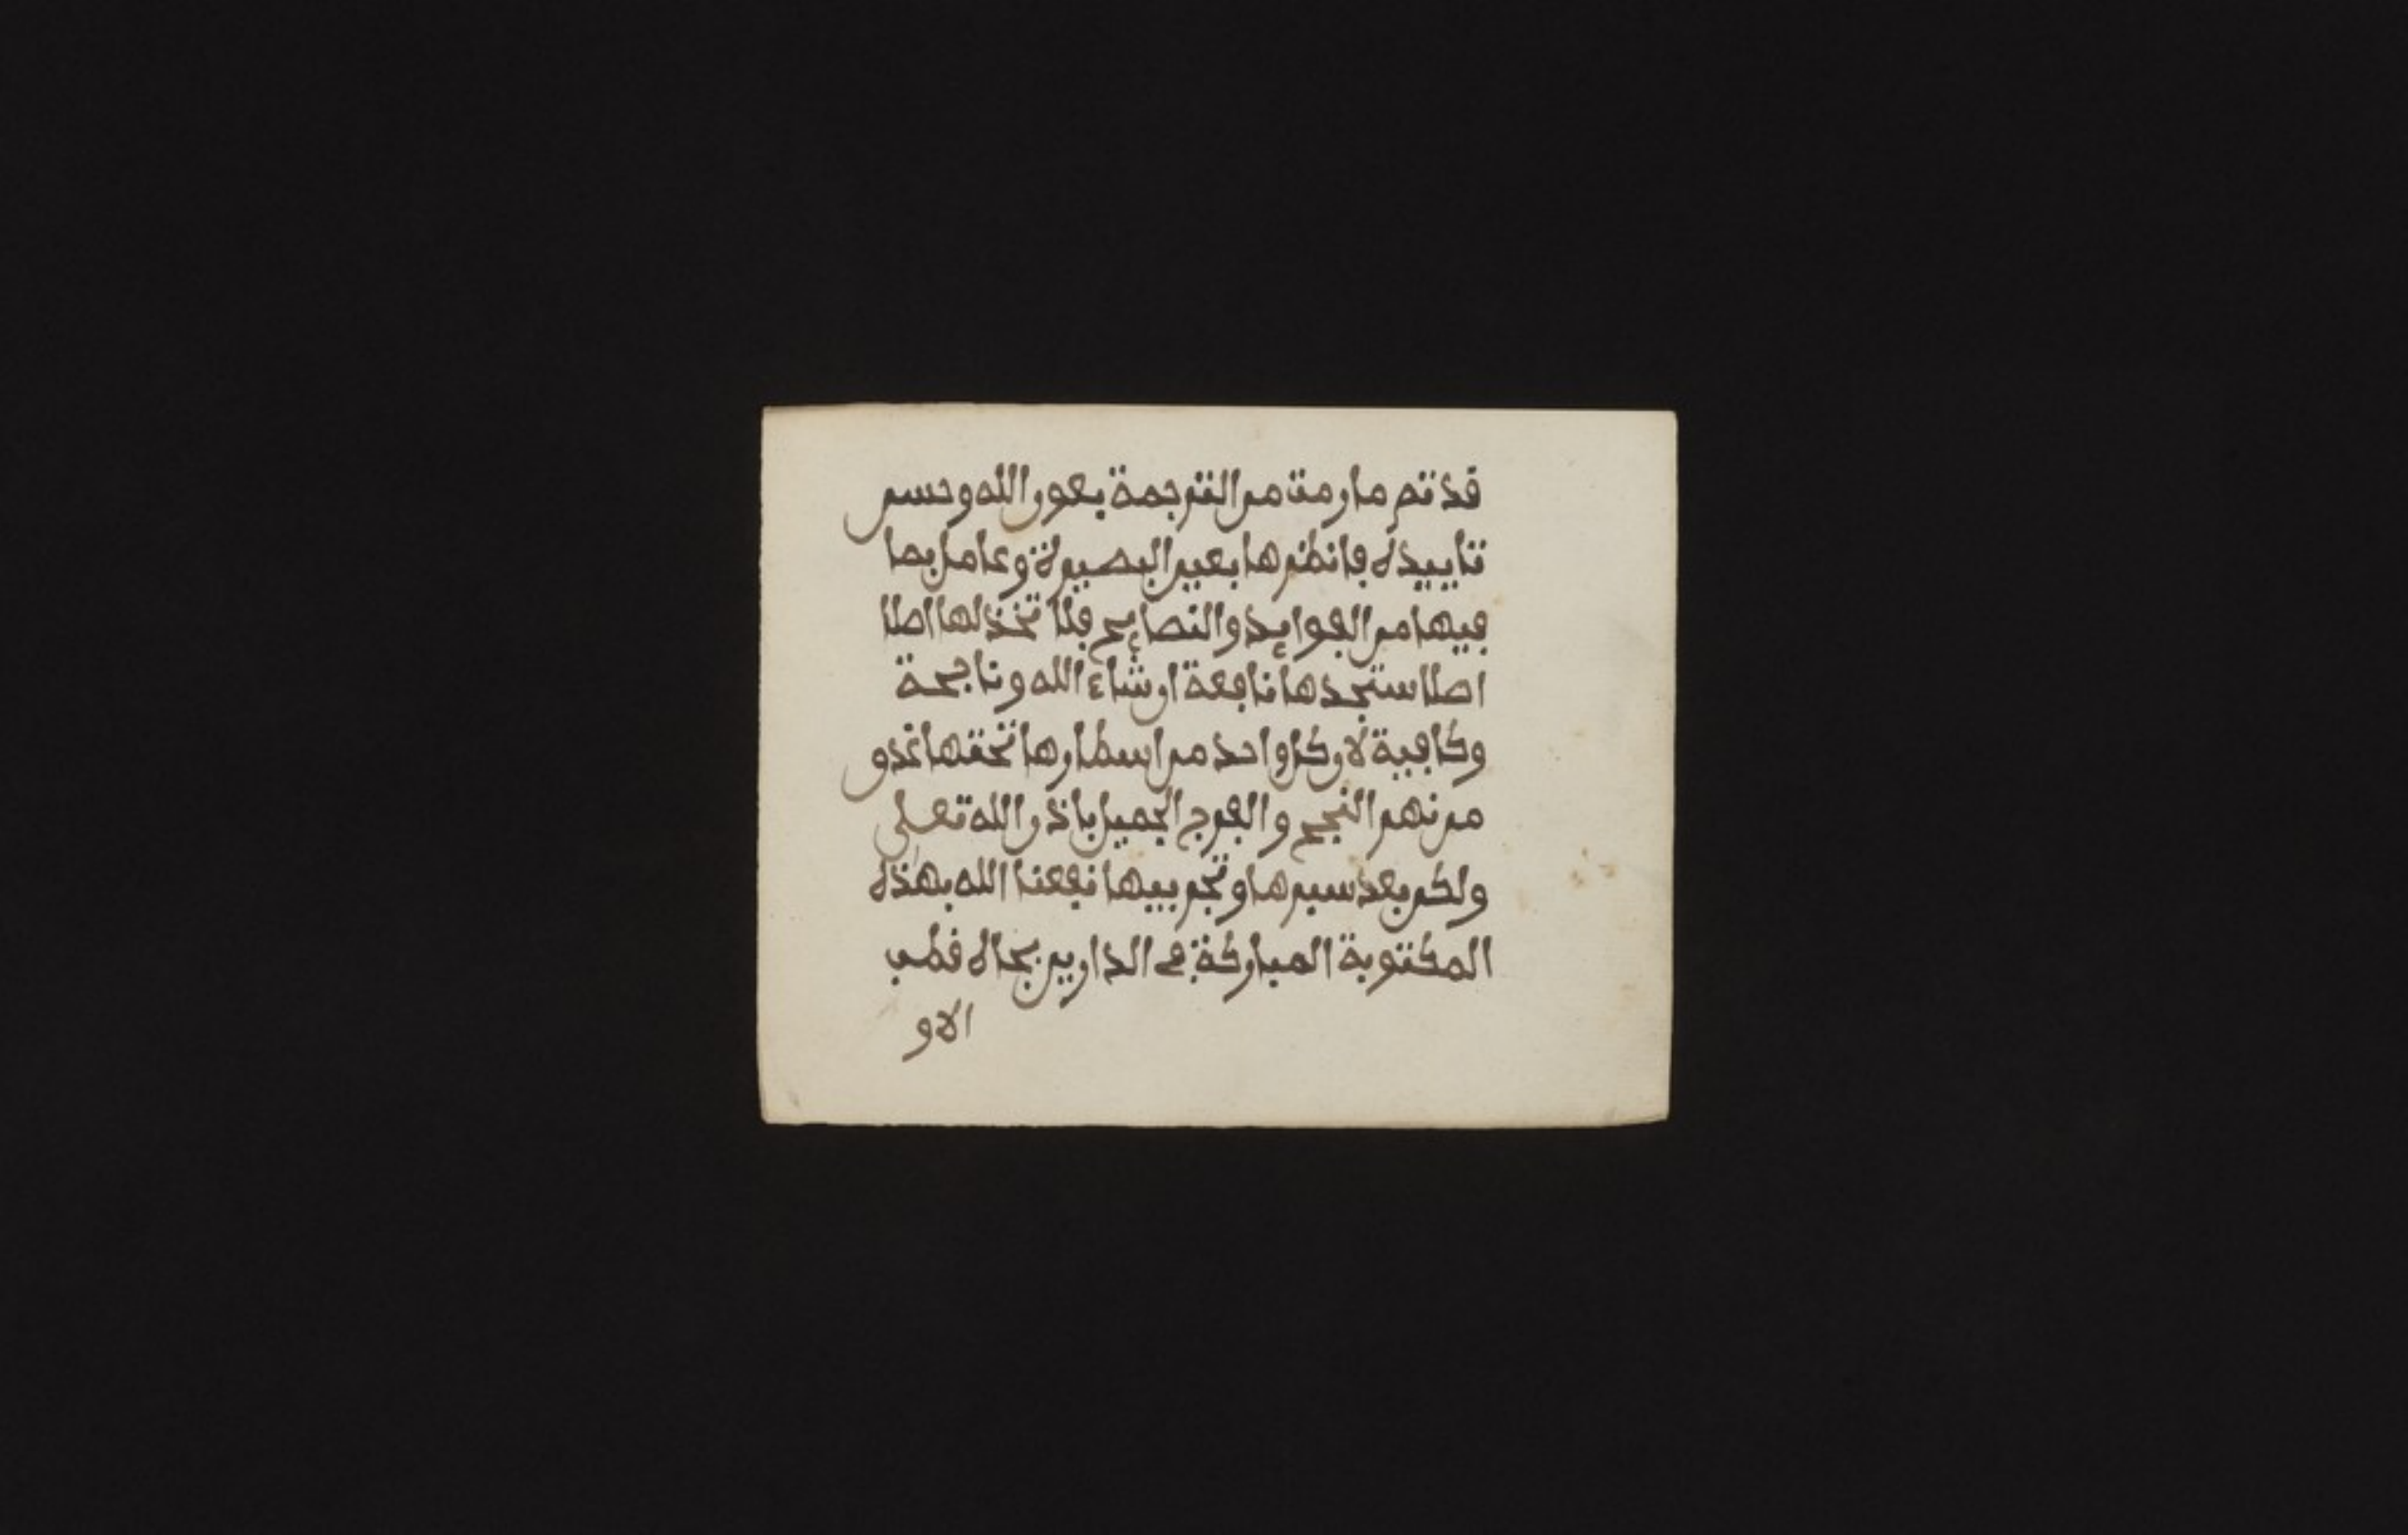 قد تم ما رمت من الترجمة بعون الله وحسن
تاييده فانظرها بعين البصيرة وعامل بما
فيها من الفوايد والنصايح فلا تخذلها اصلا
اصلا ستجدها نافعة ان شاء الله وناجحة
وكافية لان كل واحد من اسطارها تحتها تحذو
من نهر النجح والفرج الجميل باذن الله تعلى
ولكن بعد سبرها وتجريبها نفعنا الله بهذه
المكتوبة المباركة في الدارين بجاه قطب
الاو